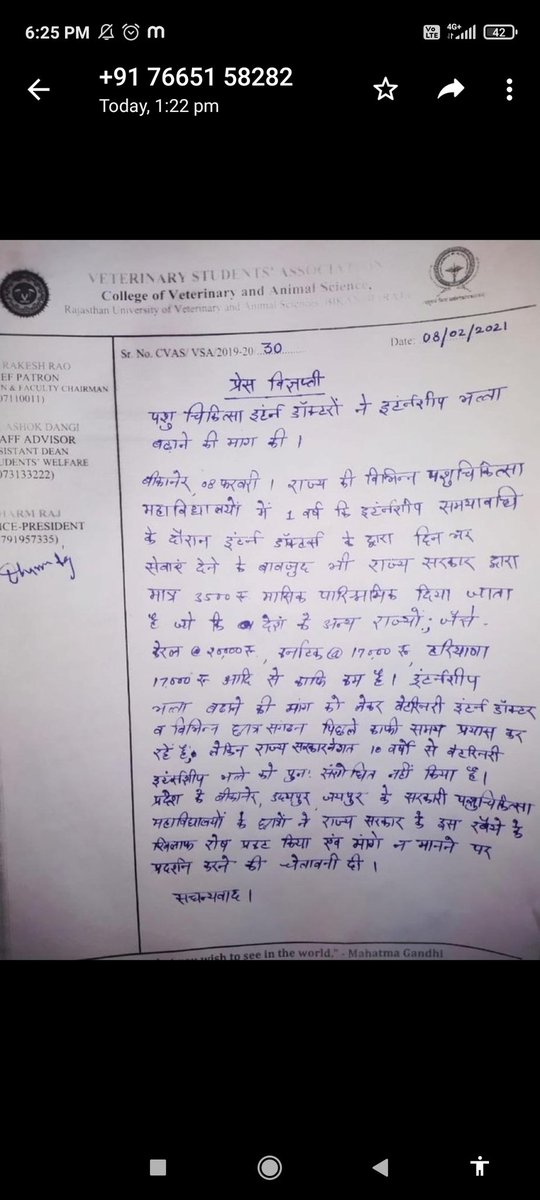 6:25 PM
Vo LTE 4G+ 42
+91 76651 58282
Today, 1:22 pm
VETERINARY STUDENTS' ASSOCIATION
College of Veterinary and Animal Science,
Rajasthan University of Veterinary and Animal Sciences,
Sr. No. CVAS/ VSA/2019-20 ..30..........
Date: 08/02/2021
RAKESH RAO
EF PATRON
N & FACULTY CHAIRMAN
07110011)
ASHOK DANGI
AFF ADVISOR
SISTANT DEAN
UDENTS' WELFARE
073133222)
HARM RAJ
ICE-PRESIDENT
791957335)
प्रेस विज्ञप्ती
पशु चिकित्सा इंटर्न डॉक्टरों ने इंटर्नशीप भत्ता
बढाने की मांग की ।
बीकानेर, 08 फरवरी । राज्य की विभिन्न पशुचिकित्सा
महाविद्यालयों में 1 वर्ष कि इंटर्नशीप समयावधि
के दौरान इंटर्न डॉक्टर्स के द्वारा दिन भर
सेवाएं देने के बावजुद भी राज्य सरकार द्वारा
मात्र 3500 रु मासिक पारिश्रमिक दिया जाता
है जो कि देश के अन्य राज्यों; जैसे
केरल @ 20,000 रु, कर्नाटक @ 17,000 रु, हरियाणा
17,000 रु आदि से काफि कम है। इंटर्नशीप
भत्ता बढाने की मांग को लेकर वेटरिनरी इंटर्न डॉक्टर
व विभिन्न छात्र संगठन पिछले काफी समय प्रयास कर
रहें हैं, लेकिन राज्य सरकार ने गत 10 वर्षों से वेटरिनरी
इंटर्नशीप भत्ते को पुनः संशोधित नहीं किया है।
प्रदेश के बीकानेर, उदयपुर, जयपुर के सरकारी पशुचिकित्सा
महाविद्यालयों के छात्रों ने राज्य सरकार के इस रवैये के
खिलाफ रोष प्रकट किया एंव मांगे न मानने पर
प्रदर्शन करने की चेतावनी दी ।
सधन्यवाद ।
wish to see in the world." - Mahatma Gandhi